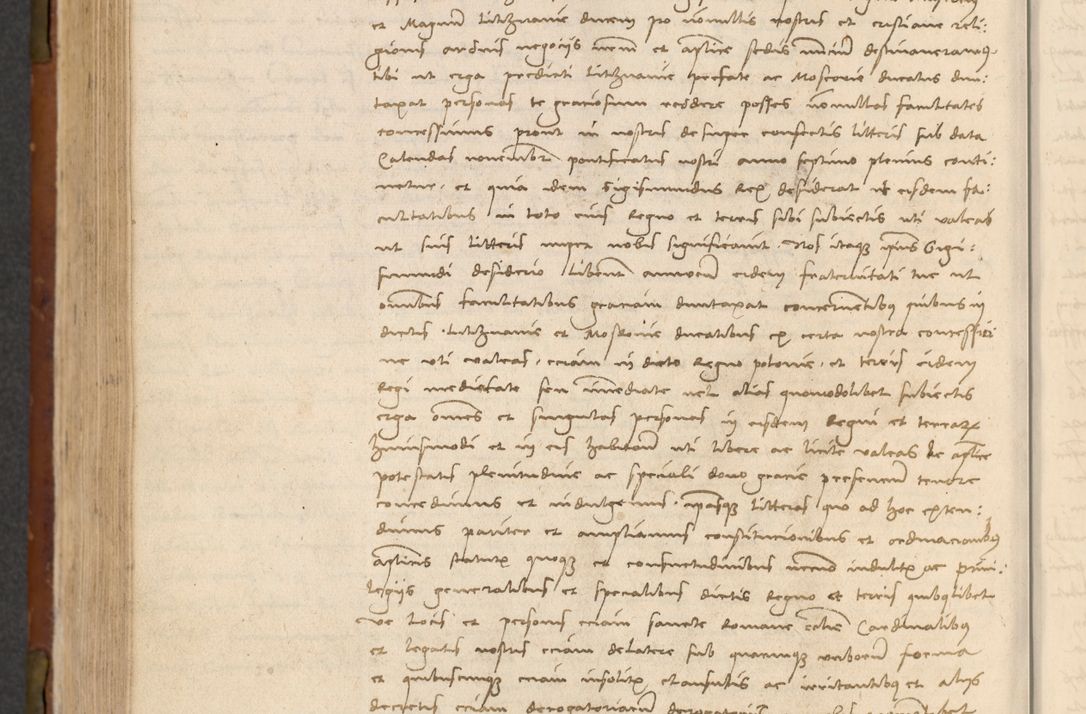 et Magnum Lithuanie ducem pro nonnullis nostris et cristiane reli:
gionis arduis negocijs nrm et aplice sedis nuncium destinaverimus
tibi ut erga predicti Lithuanie prefate ac Moscovie ducatus dun:
taxat personas te graciosum reddere posses nonnullas facultates
concessimus prout in nostris desuper confectis litteris sub data
Calendas novembr pontificatus nostri anno septimo plenius conti:
netur. et quia idem Sigismundus Rex desiderat ut eisdem fa:
cultatibus in toto eius Regno et terris sibi subiectis uti valeas
ut suis litteris nuper nobis significavit. Nos itaq ipius Sigis:
smundi desiderio libent annuen eidem fraternitati tue ut
omnibus facultatibus graciam duntaxat concernentibq quibus in
dictis Lithuanie et Moskovie ducatibus ex certa nostra concessio
ne uti valeas. eciam in dicto Regno polonie. et terris eidem
Regi mediate seu immediate vel alias quomodolibet subiectis
erga omnes et singulas personas in eisdem Regni et terrar
huiusmodi et in eis habitan uti libere ac licite valeas de aplice
potestatis plenitudine ac speciali dono gracie presencium tenore
concedimus et indulgemus. ipasq litteras quo ad hoc exten:
dimus pariter et ampliamus constitucionibus et ordinacionibq
aplicis statutis quoq et consuetudinibus necno indultis ac privi:
legijs generalibus et specialibus dictis Regno et terris quibqlibet
ve locis et personis eciam sancte Romane eclie Cardinalibq
et legatis nostris eciam delatere sub quacumq verborum forma
et quibuscumq eciam insolitis clausulis ac irritantibq et alijs
decretis eciam derogatoriarum